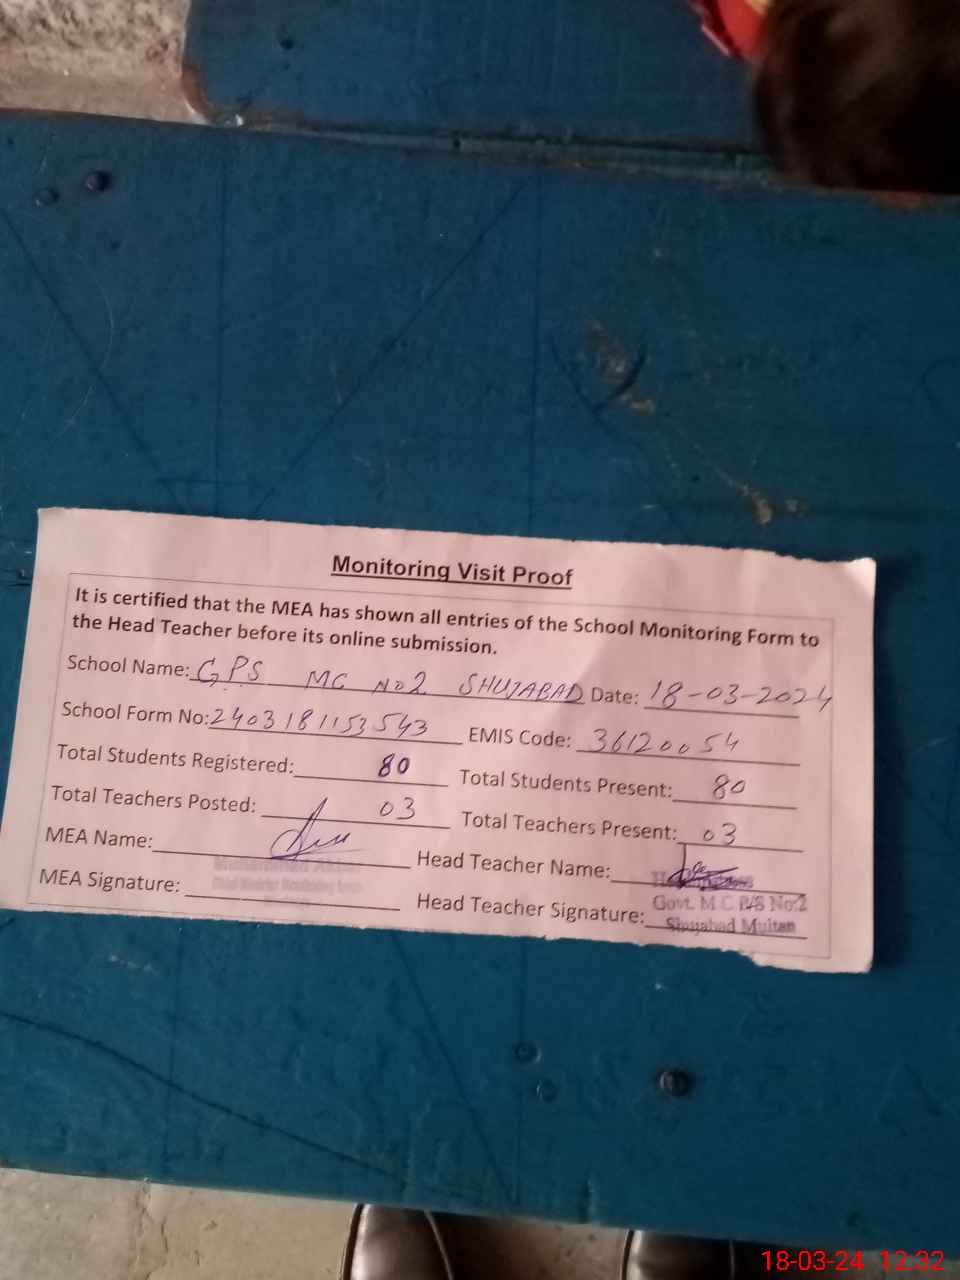 Monitoring Visit Proof
It is certified that the MEA has shown all entries of the School Monitoring Form to
the Head Teacher before its online submission.
School Name: GPS MC No2 SHUJABAD Date: 18-03-2024
School Form No: 2403181153543 EMIS Code: 36120054
Total Students Registered: 80 Total Students Present: 80
Total Teachers Posted: 03 Total Teachers Present: 03
MEA Name: Head Teacher Name:
MEA Signature: Head Teacher Signature:
Govt. M.C. P/S No:2
Shujabad Multan
18-03-24 12:32